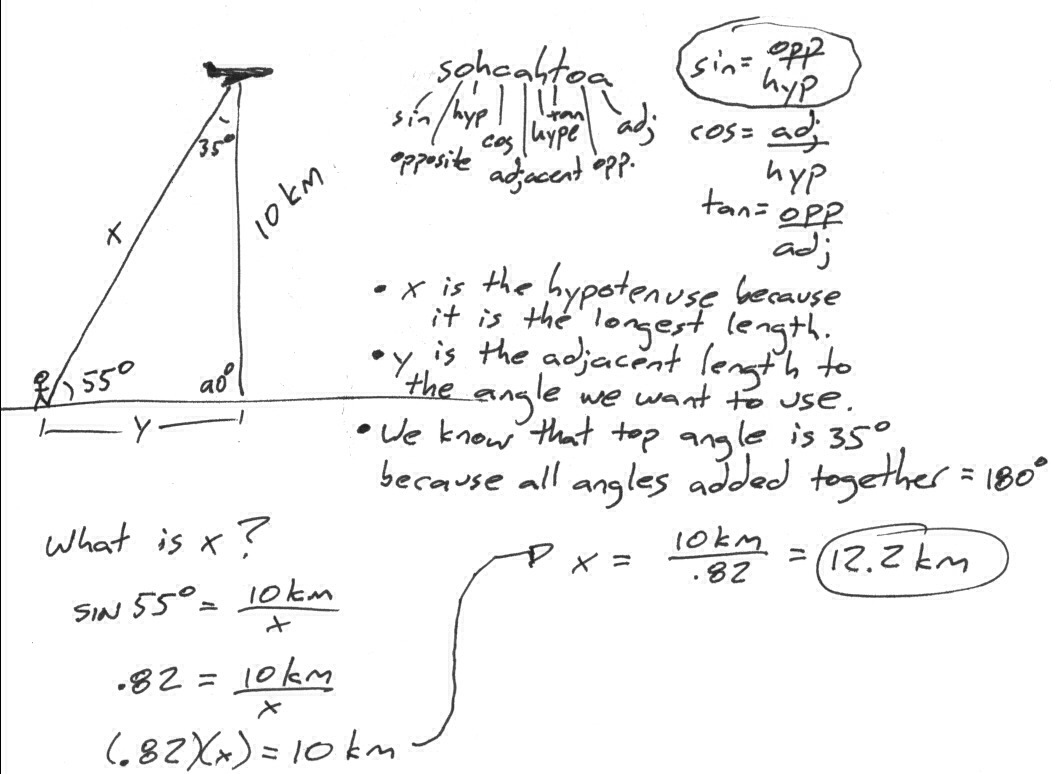 sohcahtoa
sin hyp cos tan hype adj
opposite adjacent opp.
sin = opp
hyp
cos = adj
hyp
tan = opp
adj
35°
10 km
x
55°
90°
y
• x is the hypotenuse because
it is the longest length.
• y is the adjacent length to
the angle we want to use.
• We know that top angle is 35°
because all angles added together = 180°
What is x?
SIN 55° = 10 km
x
.82 = 10 km
x
(.82)(x) = 10 km
x = 10 km = 12.2 km
.82